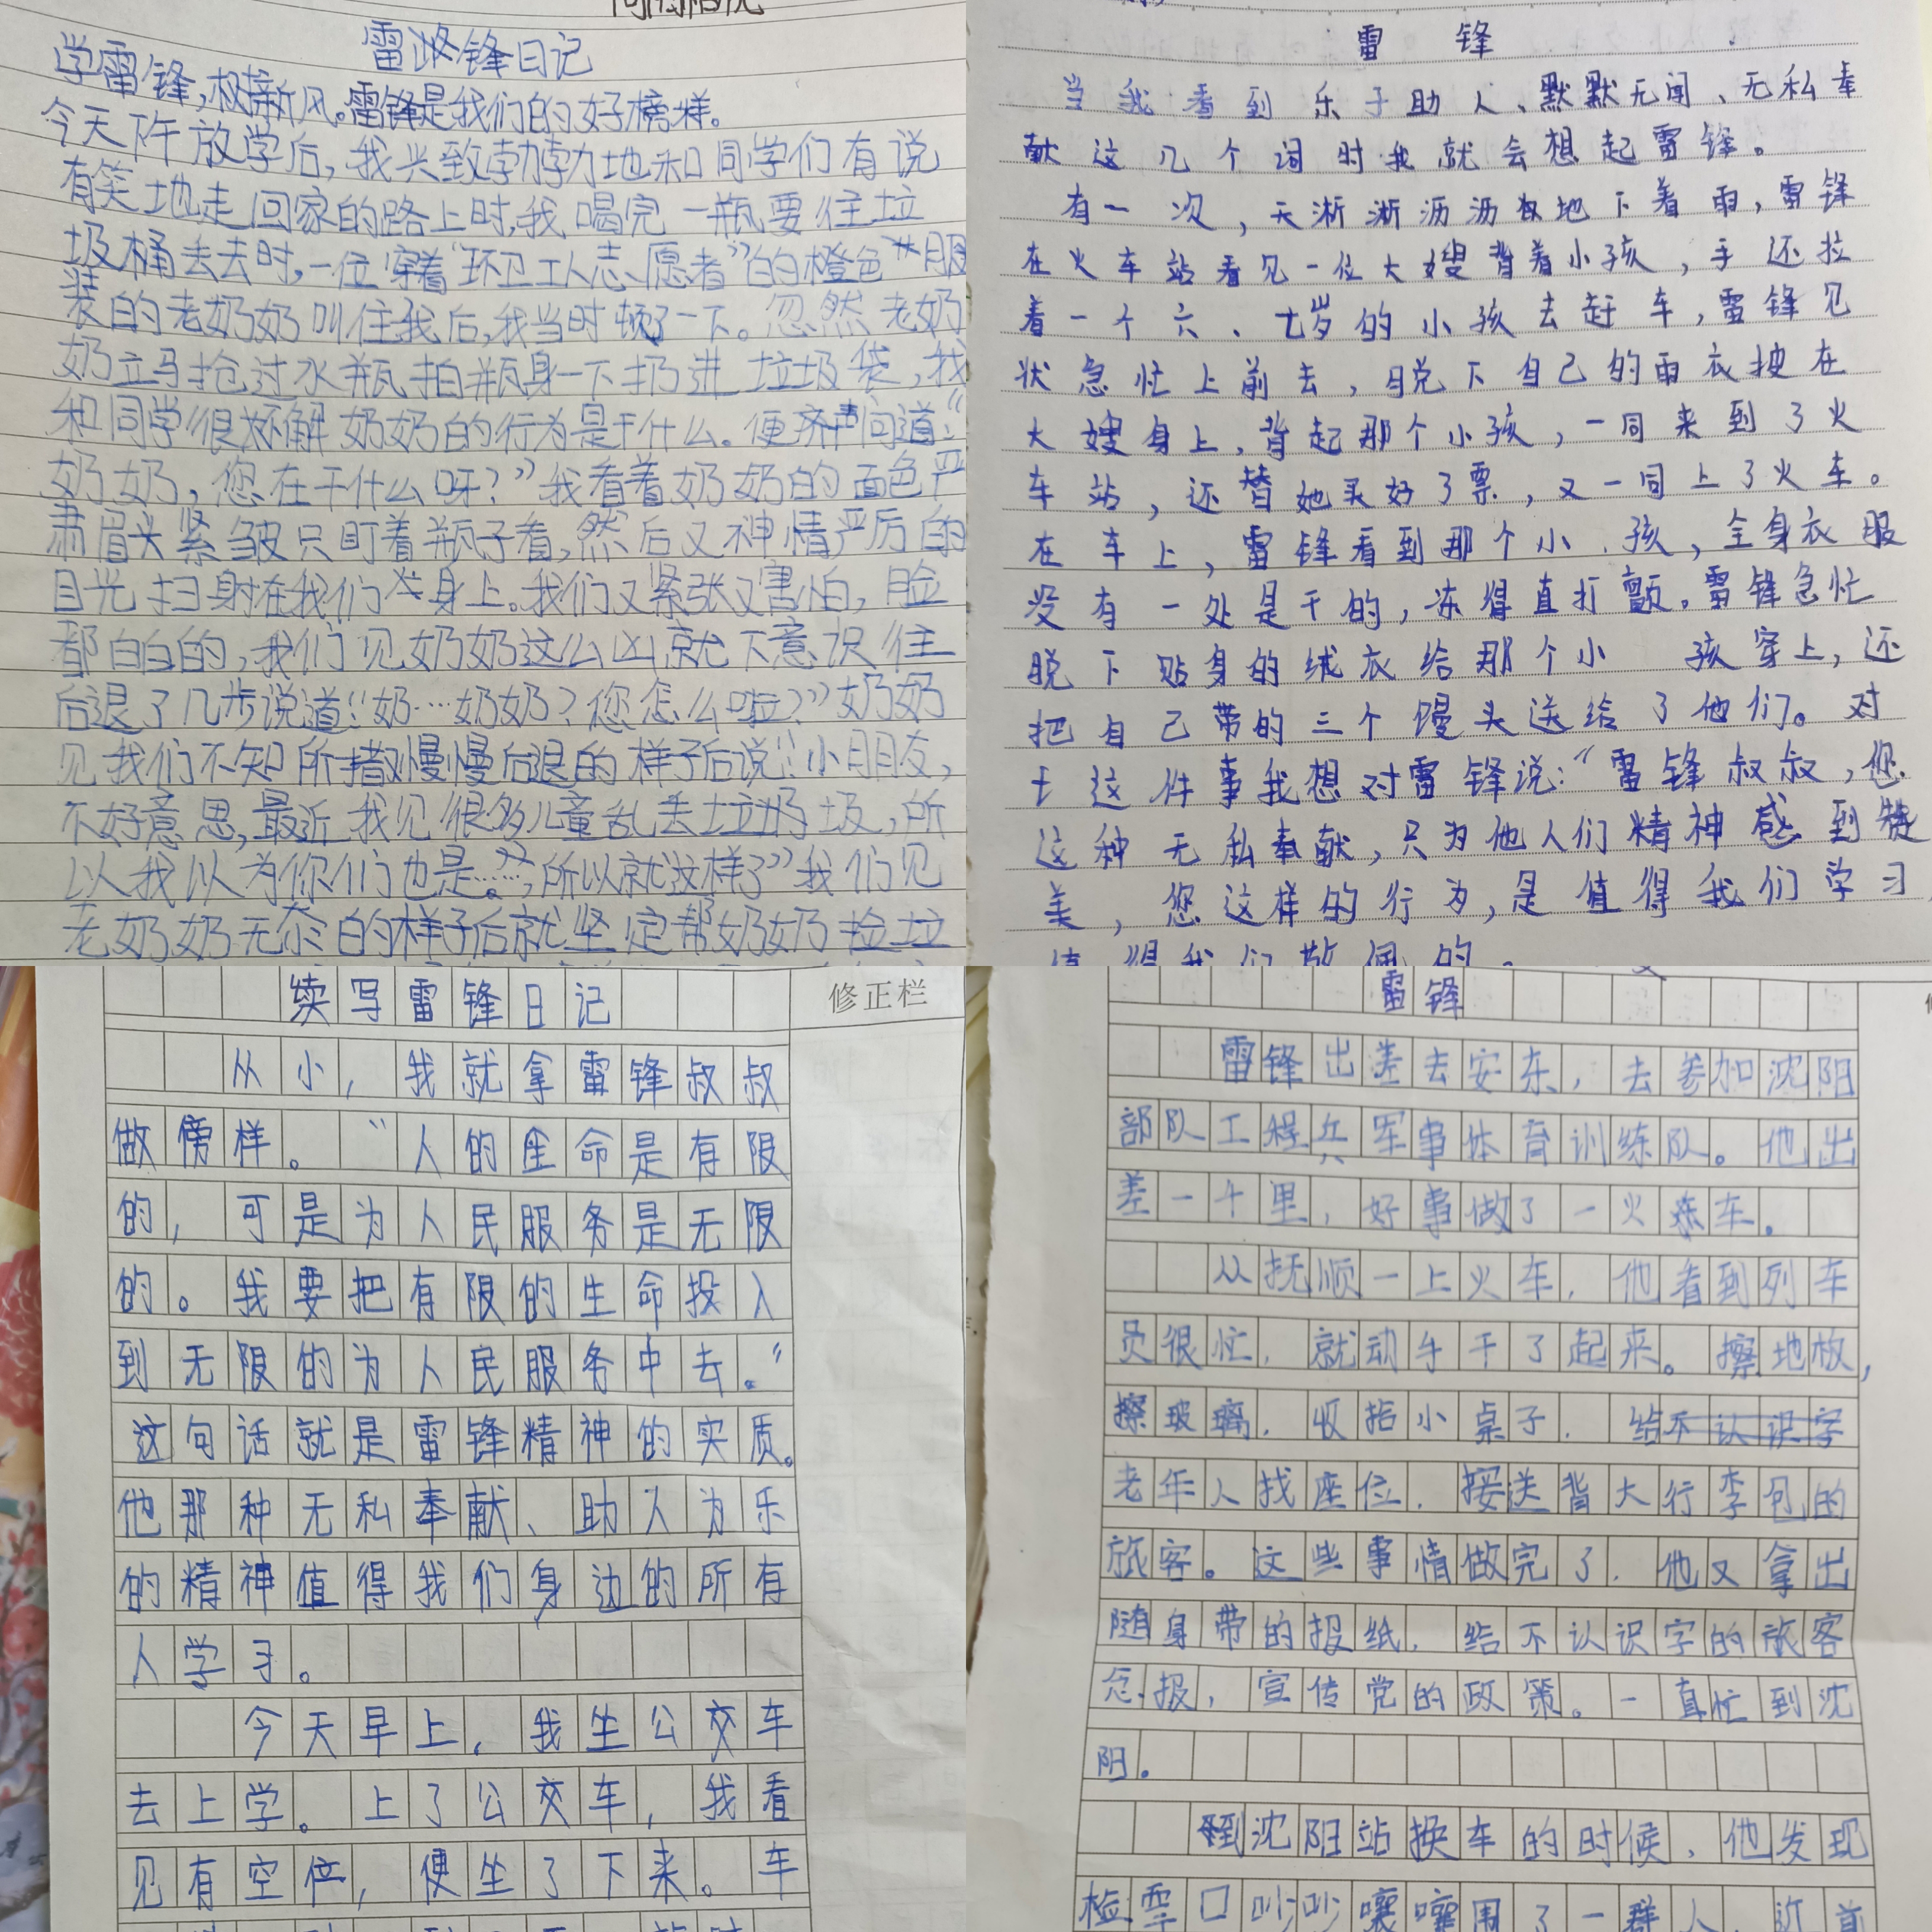 雷锋日记
学雷锋,树新风。雷锋是我们的好榜样。
今天下午放学后,我兴致勃勃地和同学们有说
有笑地走回家的路上时,我喝完一瓶要往垃
圾桶丢去时,一位穿着“环卫工人志愿者”的橙色服
装的老奶奶叫住我后,我当时顿了一下。忽然老奶
奶立马抢过水瓶拍瓶身一下扔进垃圾袋,我
和同学很不解奶奶的行为是干什么。便齐声问道:“
奶奶,您在干什么呀?”我看着奶奶的面色严
肃眉头紧皱只盯着瓶子看,然后又神情严厉的
目光扫射在我们身上。我们又紧张又害怕,脸
都白白的,我们见奶奶这么凶就下意识往
后退了几步说道:“奶…奶奶?您怎么啦?”奶奶
见我们不知所措慢慢后退的样子后说:“小朋友,
不好意思,最近我见很多儿童乱丢垃圾,所
以我以为你们也是……,所以就这样了”我们见
老奶奶无奈的样子后就坚定帮奶奶捡垃
雷锋
当我看到乐于助人、默默无闻、无私奉
献这几个词时我就会想起雷锋。
有一次,天淅淅沥沥地下着雨,雷锋
在火车站看见一位大嫂背着小孩,手还拉
着一个六、七岁的小孩去赶车,雷锋见
状急忙上前去,脱下自己的雨衣披在
大嫂身上,背起那个小孩,一同来到了火
车站,还替她买好了票,又一同上了火车。
在车上,雷锋看到那个小孩,全身衣服
没有一处是干的,冻得直打颤,雷锋急忙
脱下贴身的绒衣给那个小孩穿上,还
把自己带的三个馒头送给了他们。对
于这件事我想对雷锋说:“雷锋叔叔,您
这种无私奉献,只为他人们精神感到赞
美,您这样的行为,是值得我们学习
值得我们敬佩的。
续写雷锋日记
修正栏
从小,我就拿雷锋叔叔
做傍样。“人的生命是有限
的,可是为人民服务是无限
的。我要把有限的生命投入
到无限的为人民服务中去。”
这句话就是雷锋精神的实质。
他那种无私奉献、助人为乐
的精神值得我们身边的所有
人学习。
今天早上,我坐公交车
去上学。上了公交车,我看
见有空位,便坐了下来。车
雷锋
雷锋出差去安东,去参加沈阳
部队工程兵军事体育训练队。他出
差一千里,好事做了一火车。
从抚顺一上火车,他看到列车
员很忙,就动手干了起来。擦地板,
擦玻璃,收拾小桌子,给
老年人找座位,接送背大行李包的
旅客。这些事情做完了,他又拿出
随身带的报纸,给不认识字的旅客
念报,宣传党的政策。一直忙到沈
阳。
到沈阳站换车的时候,他发现
检票口吵吵嚷嚷围了一群人,近前